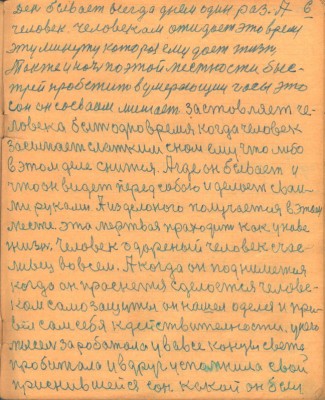 ден бывает всегда днём один раз. А 6
человек. Человекам ожидает это время
эту минуту которая ему дает жизн.
Также и ночь по этой местности быс-
трей пробстить в умерающии часы это
сон он совсеам мешает заставляет че-
ловека быт одно время когда человек
засыпает сладким сном ему что либо
в этом деле снится. А где он бывает и
что он видет перед собою и делает свои-
ми руками. А из делоного получается в этом
месте эта мертвая проходит как у наве
жизн. Человек одареный человек счас-
ливец во всем. А когда он поднимется
когда он праснется сделается человек-
ком само защиты он нашел оделся и при-
вёл сам себя к действительности. у него
мысел заработала и в все концы света
пробитала и вдруг успомнила свой
приснившейся сон. какой он был